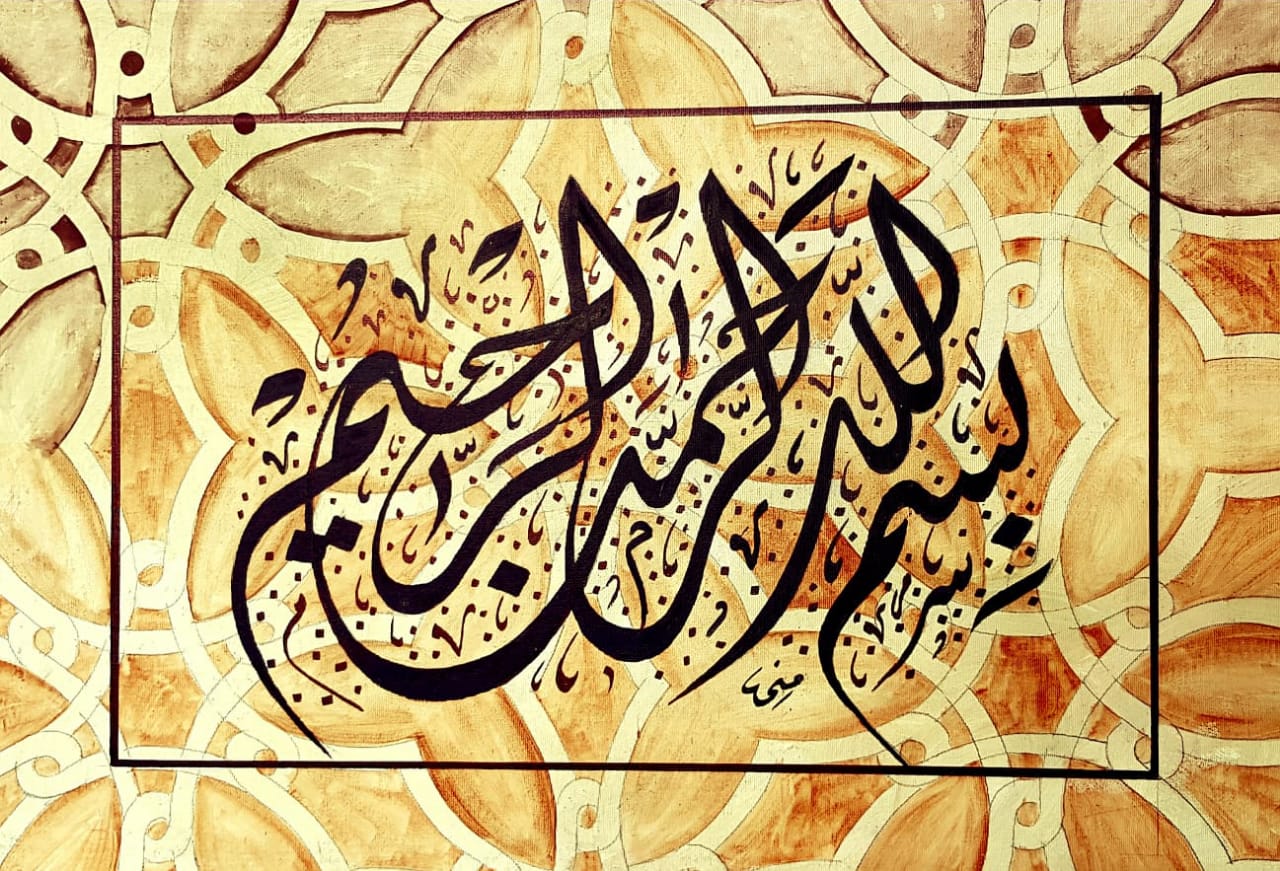 بسم الله الرحمن الرحيم
منى